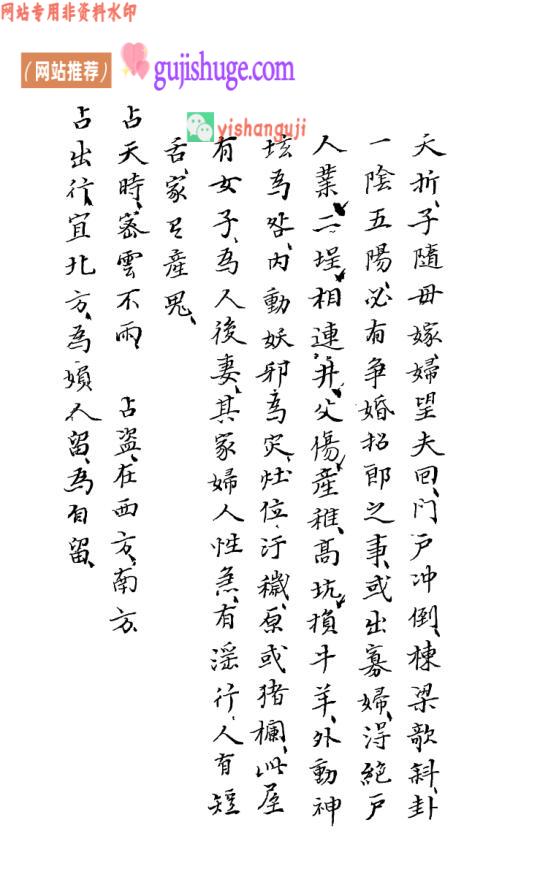 网站专用非资料水印
（网站推荐）
gujishuge.com
yishanguji
夭折、子隨母嫁、婦望夫回、门户冲倒、棟梁歌斜、卦
一陰五陽、必有争婚招郎之事、或出寡婦、得絶户
人業、二埕相連井、父傷產稚、高坑損牛羊、外動神
坛為咎、内動妖邪為灾、灶位汙穢、原或猪欄、此屋
有女子、為人後妻、其家婦人性急、有淫行、人有短
舌、家有產鬼、
占天時、密雲不雨 占盜、在西方、南方、
占出行、宜北方、為婦人留、為有留、